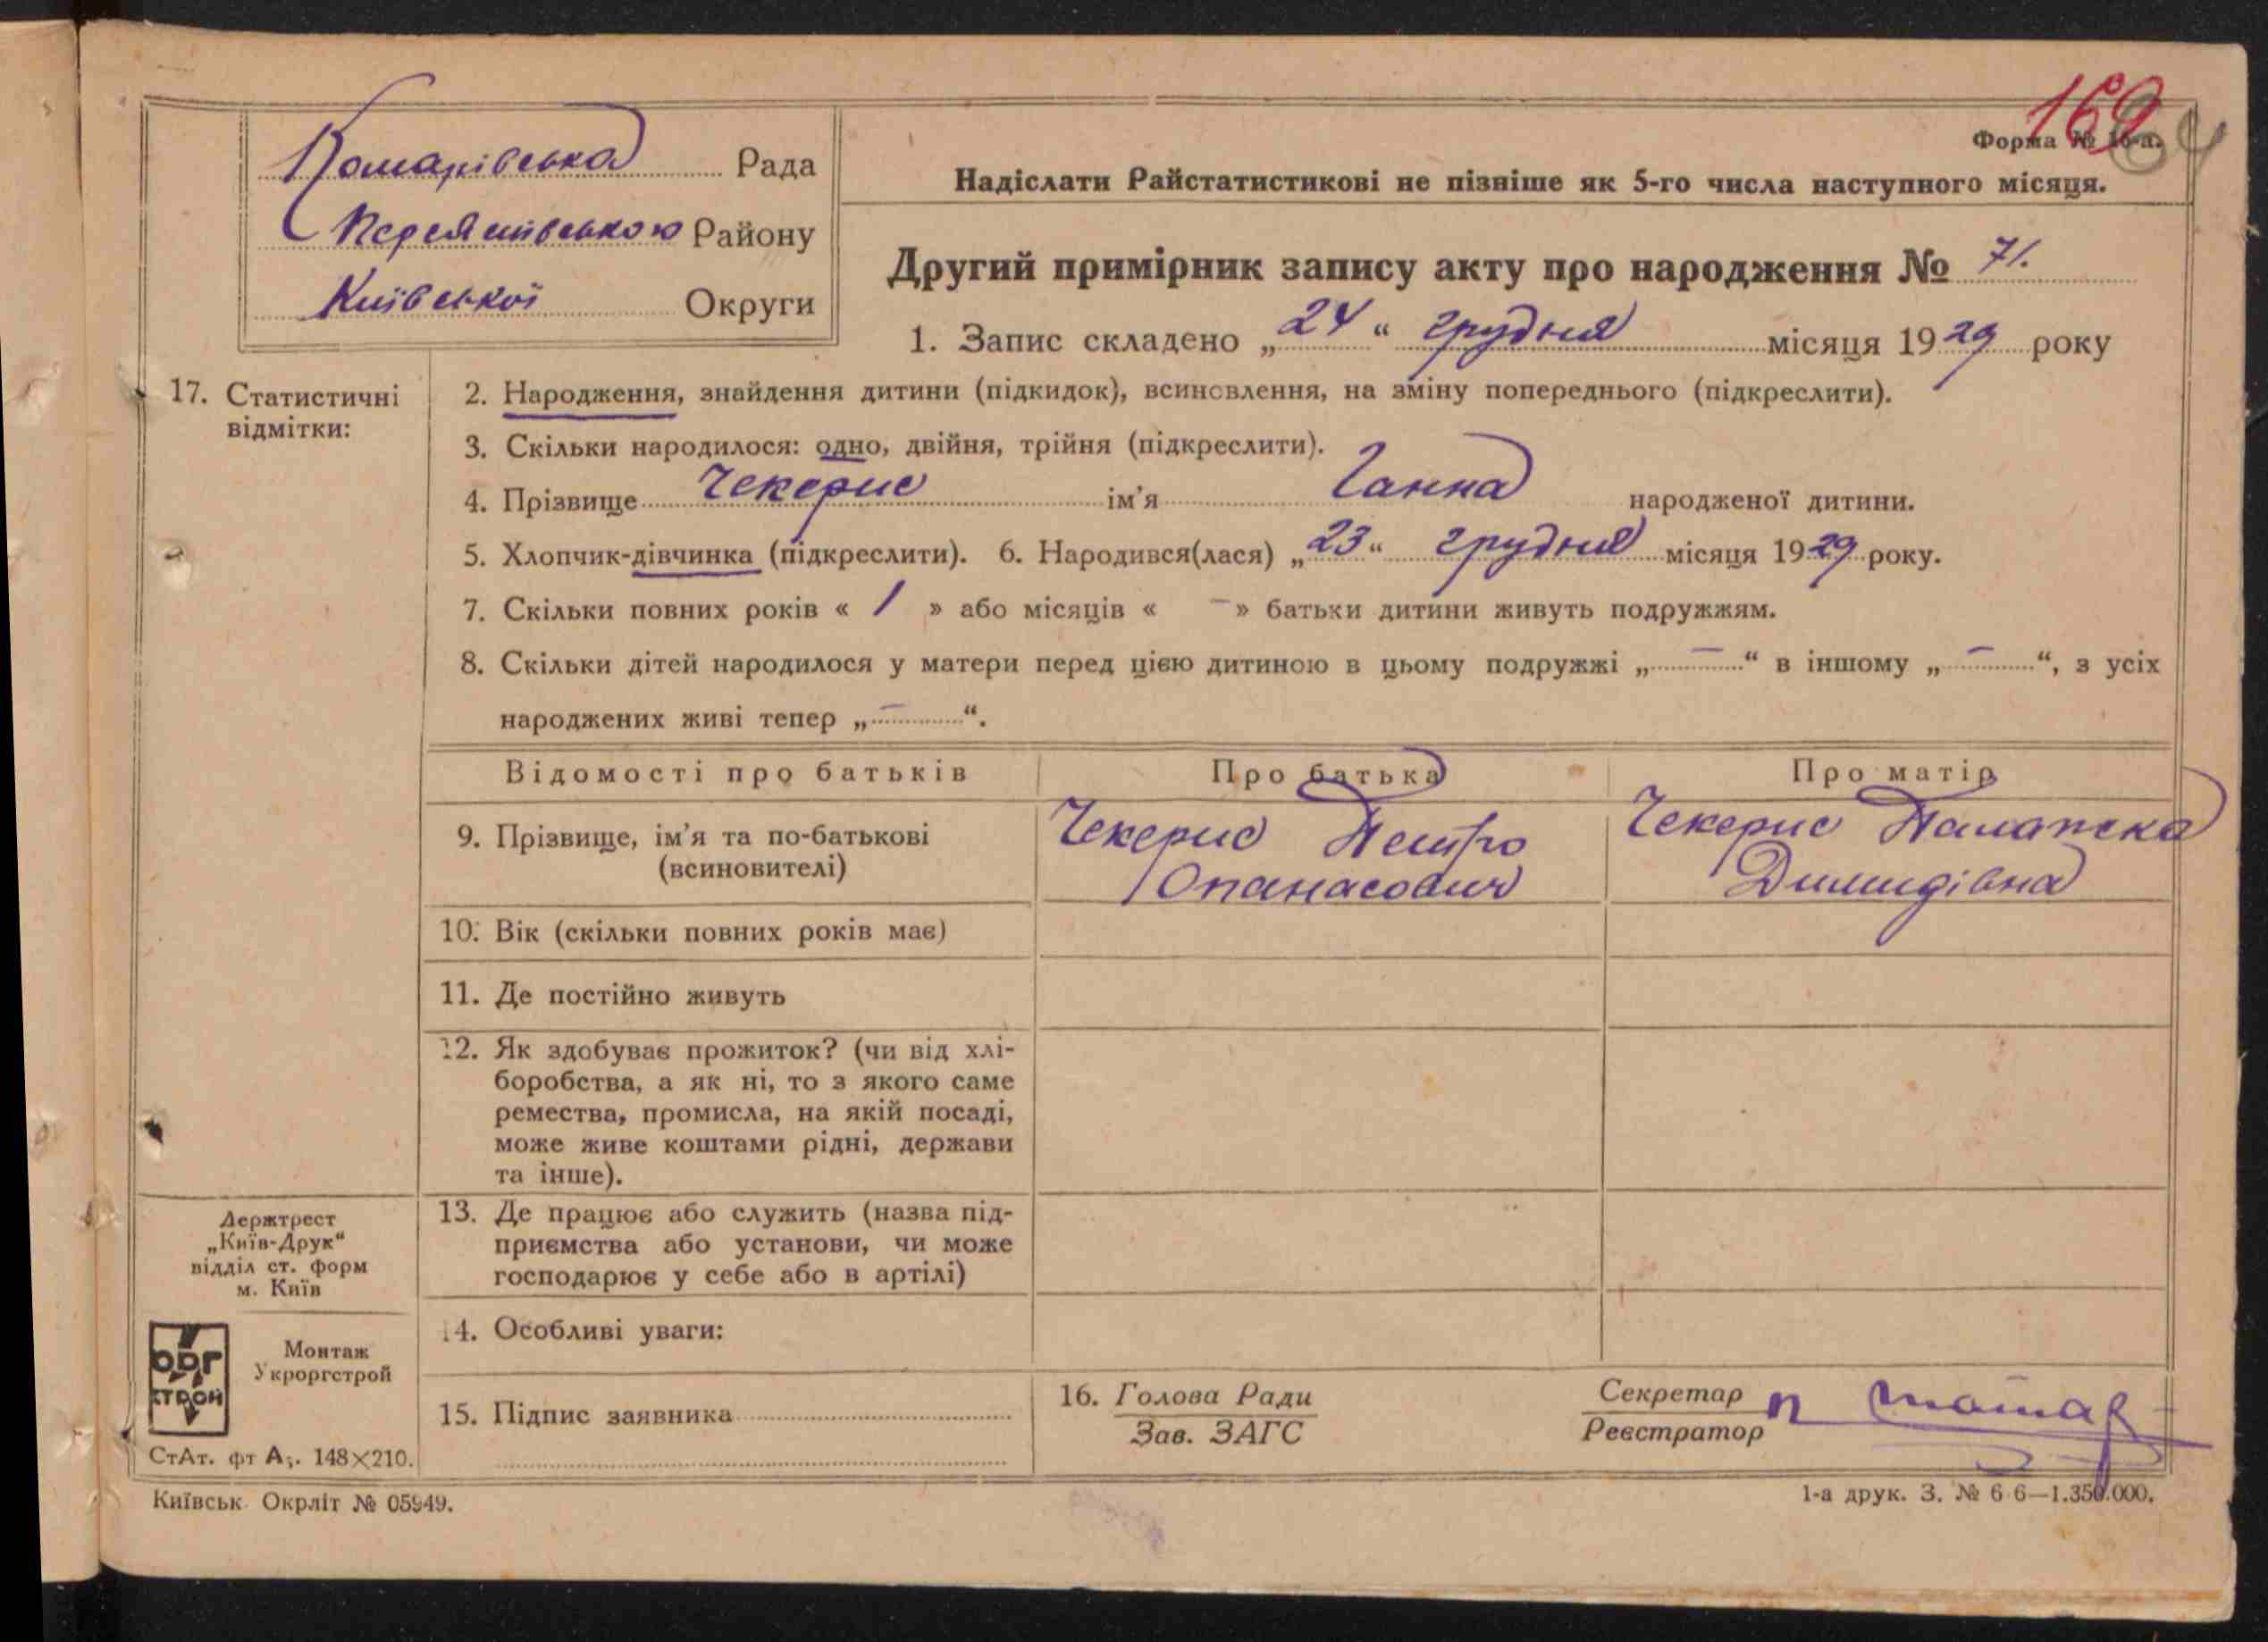 169
64
Форма № 16-а.
Комарівська Рада
Переяслівського Району
Київської Округи
Надіслати Райстатистикові не пізніше як 5-го числа наступного місяця.
Другий примірник запису акту про народження № 71.
1. Запис складено „24“ грудня місяця 1929 року
17. Статистичні відмітки:
2. Народження, знайдення дитини (підкидок), всиновлення, на зміну попереднього (підкреслити).
3. Скільки народилося: одно, двійня, трійня (підкреслити).
4. Прізвище Чекерис ім’я Ганна народженої дитини.
5. Хлопчик-дівчинка (підкреслити). 6. Народився(лася) „23“ грудня місяця 1929 року.
7. Скільки повних років « 1 » або місяців « – » батьки дитини живуть подружжям.
8. Скільки дітей народилося у матери перед цією дитиною в цьому подружжі „ – “ в іншому „ – “, з усіх
народжених живі тепер „ – “.
Відомості про батьків
Про батька
Про матір
9. Прізвище, ім’я та по-батькові
(всиновителі)
Чекерис Петро
Опанасович
Чекерис Палажка
Димидівна
10. Вік (скільки повних років має)
11. Де постійно живуть
12. Як здобуває прожиток? (чи від хлі-
боробства, а як ні, то з якого саме
ремества, промисла, на якій посаді,
може живе коштами рідні, держави
та інше).
13. Де працює або служить (назва під-
приємства або установи, чи може
господарює у себе або в артілі)
14. Особливі уваги:
15. Підпис заявника
16. Голова Ради
Зав. ЗАГС
Секретар
Реєстратор
Держтрест
„Київ-Друк“
відділ ст. форм
м. Київ
ОРГ
СТРОЙ
Монтаж
Укроргстрой
СтАт. фт А₅. 148×210.
Київськ. Окрліт № 05949.
1-а друк. З. № 6 6—1.350.000.